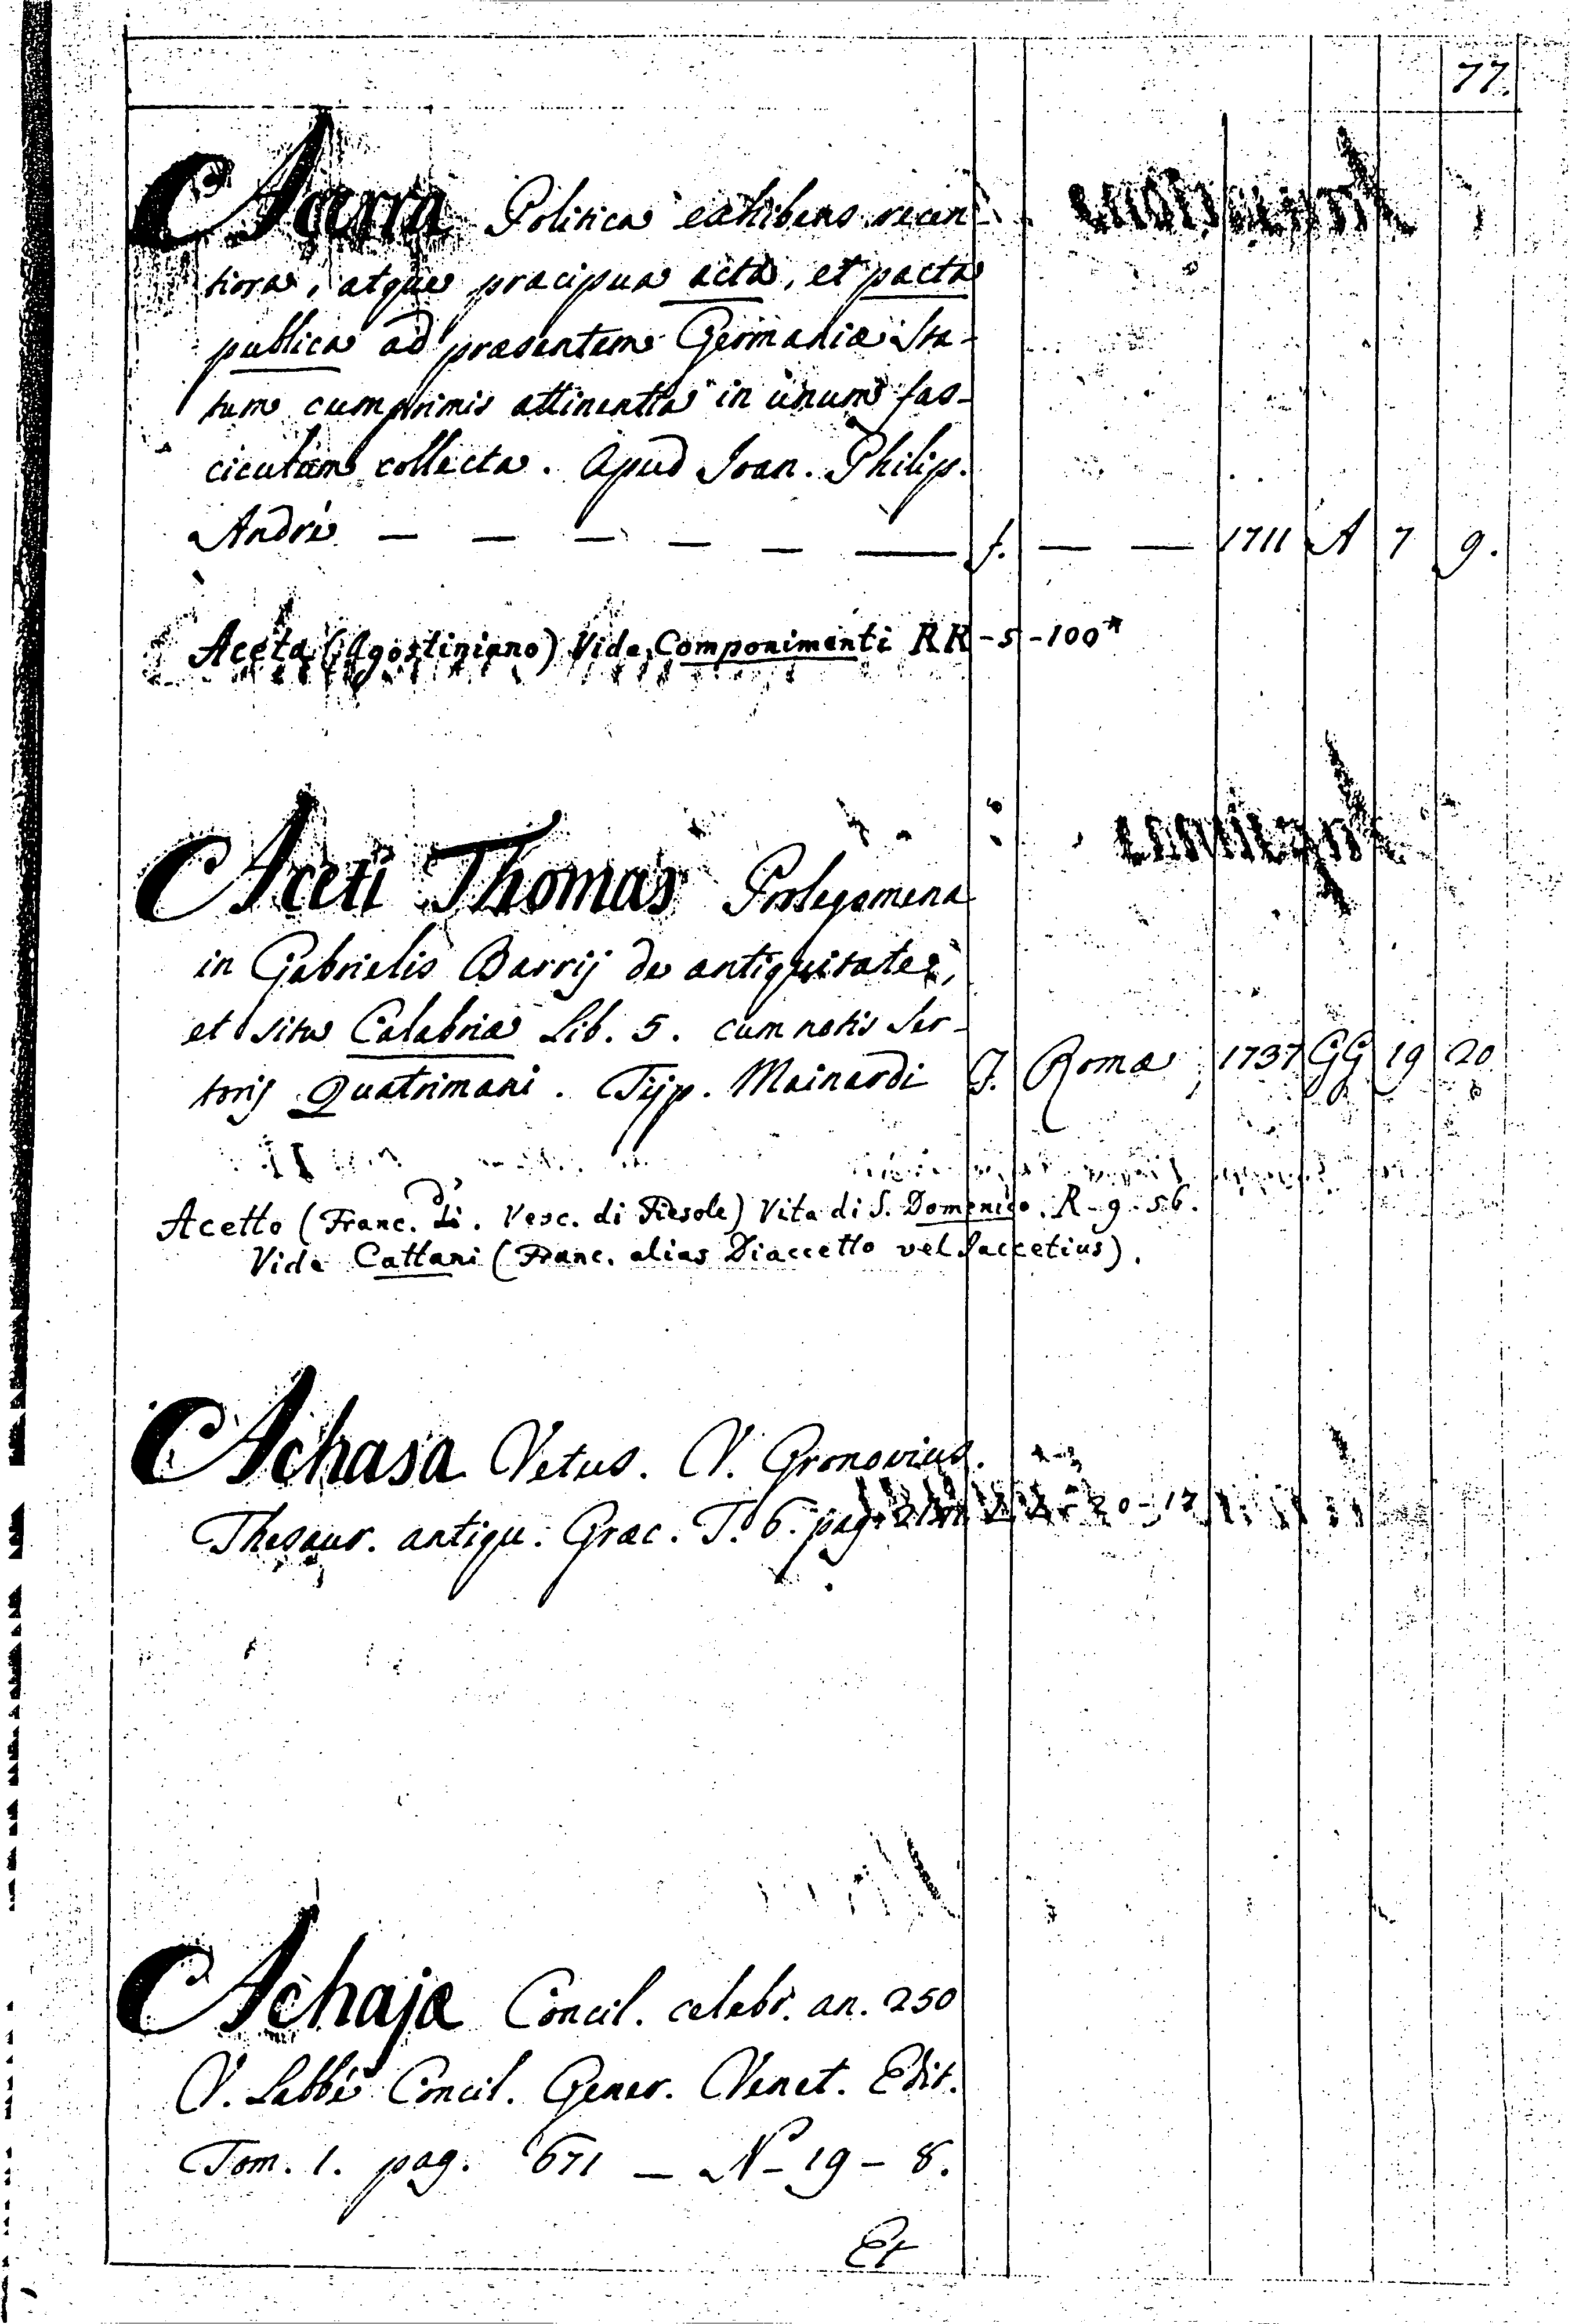 77.
Acerra Politica exhibens recen-
tiora, atque præcipua acta, et pacta
publica ad præsentem Germaniæ Sta-
tum cumprimis attinentia in unum fas-
ciculum collecta. Apud Joan. Philip.
Andrè — — — — — — f. — — 1711 A 7 9.
Aceta (Agostiniano) Vide Componimenti RR-5-100*
Aceti Thomas Prolegomena
in Gabrielis Barrij de antiquitate,
et situ Calabriæ Lib. 5. cum notis Ser-
torij Quatrimani. Typ. Mainardi f. Romæ 1737 GG 19 20
Acetto (Franc. di. Vesc. di Fiesole) Vita di S. Domenico. R-9-56.
Vide Cattani (Franc. alias Diaccetto vel Jaccetius).
Achasa Vetus. V. Gronovius.
Thesaur. antiqu. Græc. T. 6. pag.
Achajæ Concil. celebr. an. 250
V. Labbè Concil. Gener. Venet. Edit.
Tom. 1. pag. 671 — N-19-8.
Et